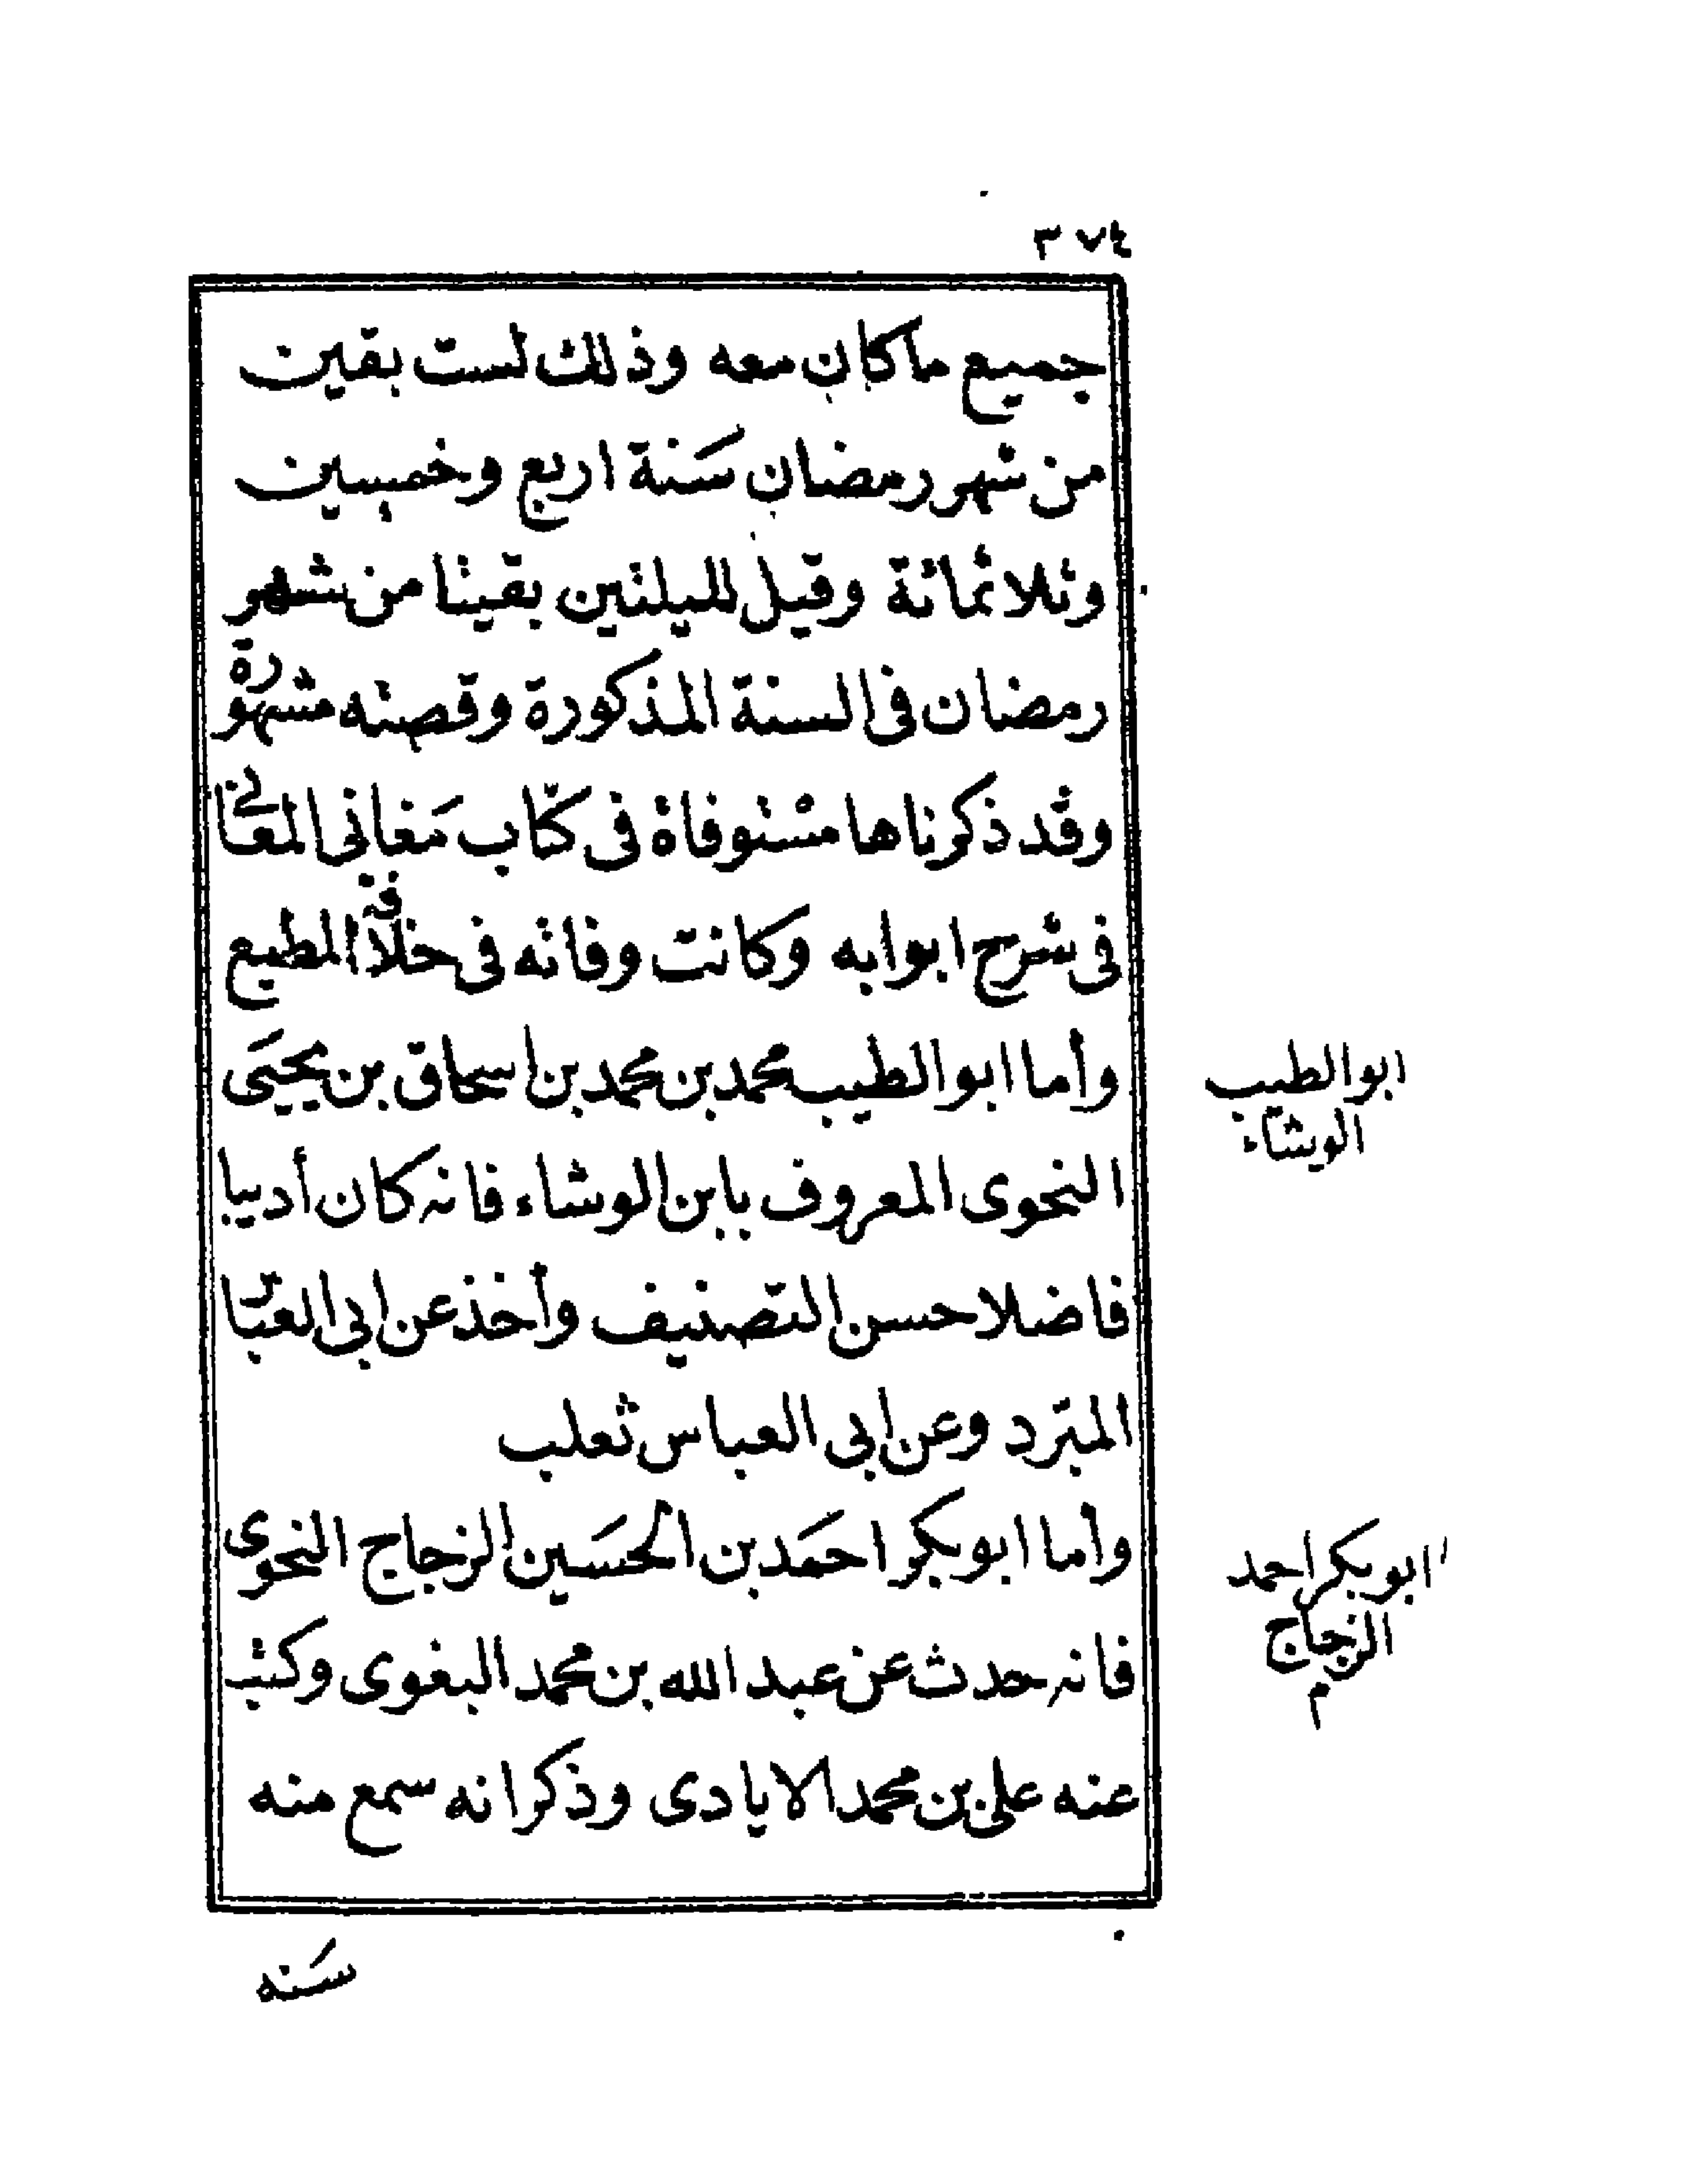 ٣٧٤
جميع ماكان معه وذلك لست بقين
من شهر رمضان سَنة اربع وخمسين
وثلاثمائة وقيل لليلتين بقيتا من شهر
رمضان فى السنة المذكورة وقصته مشهورة
وقد ذكرناها مستوفاة فى كتاب مَغانى المعانى
فى شرح ابوابه وكانت وفاته فى خلافة المطيع
وأما ابو الطيب محمد بن محمد بن اسحاق بن يحيَى
ابو الطيب
الوشاء
النحوى المعروف بابن الوشاء فانه كان أديبا
فاضلا حسن التصنيف وأخذ عن ابى العباس
المبرّد وعن ابى العباس ثعلب
وأما ابو بكر احمَد بن الحسَين الزجاج النحوى
ابو بكر احمد
الزجاج
م
فانه حدث عن عبد الله بن محمد البغوى وكتب
عنه على بن محمد الايادى وذكر انه سمع منه
سَنه